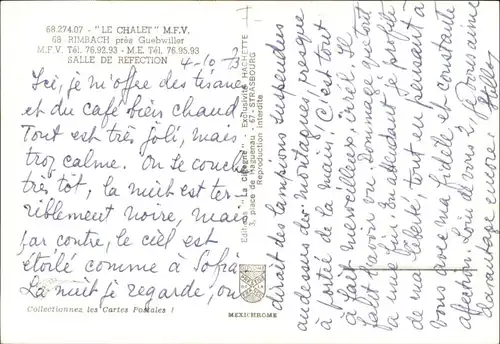 68.274.07 - "LE CHALET" M.F.V.
68 RIMBACH près Guebwiller
M.F.V. Tél. 76.92.93 - M.E. Tél. 76.95.93
SALLE DE REFECTION
4-10-73
Ici, je m'offre des tisanes
et du café bien chaud.
Tout est très joli, mais
trop calme. On se couche
très tôt, la nuit est ter-
riblement noire, mais
par contre, le ciel est
étoilé comme à Sofia
La nuit je regarde, on
Collectionnez les Cartes Postales !
Editions "La Cigogne" - Exclusivité HACHETTE
3, place de Haguenau - 67-STRASBOURG
Reproduction interdite
MEXICHROME
dirait des lampions suspendus
au dessus des montagnes, presque
à portée de la main. C'est tout
à fait merveilleux et irréel. Il
falait l'avoir vu. Dommage que tout
a une fin. En attendant je profite
de ma liberté tout en pensant à
vous avec ma fidelle et constante
affection. Loin de vous 2 je vous aime
davantage encore.